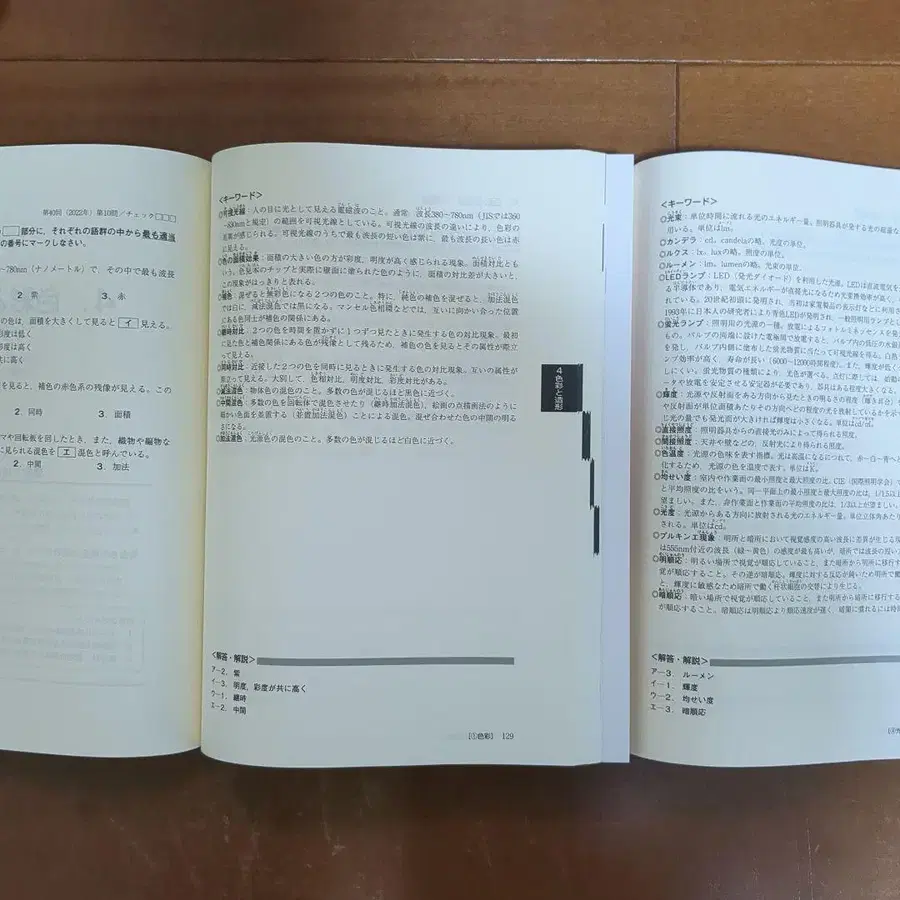 第40回（2022年）第10問／チェック□□□
の□部分に，それぞれの語群の中から最も適当
の番号にマークしなさい。
~780nm（ナノメートル）で，その中で最も波長
2．紫　3．赤
の色は，面積を大きくして見ると イ 見える。
度は低く
度は高く
共に高く
を見ると，補色の赤色系の残像が見える。この
2．同時　3．面積
マや回転板を回したとき，また，織物や編物な
に見られる混色を エ 混色と呼んでいる。
2．中間　3．加法
＜キーワード＞
◎可視光線：人の目に光として見える電磁波のこと。通常，波長380~780nm（JISでは360
~830nmと規定）の範囲を可視光線としている。可視光線の波長の違いにより，色彩の
差異が感じられる。可視光線のうちで最も波長の短い色は紫に，最も波長の長い色は赤
に見える。
◎色の面積効果：面積の大きい色の方が彩度，明度が高く感じられる現象。面積対比とも
いう。色見本のチップと実際に壁面に塗られた色のように，面積の対比差が大きいと，
この現象がはっきりと表れる。
◎補色：混ぜると無彩色になる2つの色のこと。特に，純色の補色を混ぜると，加法混色
では白，減法混色では黒になる。マンセル色相環などでは，互いに向かい合った位置
にある色同士が補色の関係にある。
◎継時対比：2つの色を時間を置かずに1つずつ見たときに発生する色の対比現象。最初
に見た色と補色関係にある色が残像として残るため，補色の色を見るとその属性が際立
って見える。
◎同時対比：近接した2つの色を同時に見るときに発生する色の対比現象。互いの属性が
際立って見える。大別して，色相対比，明度対比，彩度対比がある。
◎減法混色：物体色の混色のこと。多数の色が混じるほど黒色に近づく。
◎中間混色：多数の色を回転体で混色させたり（継時加法混色），絵画の点描画法のように
細かい色面を差置する（並置加法混色）ことによる混色。混ぜ合わせた色の中間の明る
さになる。
◎加法混色：光源色の混色のこと。多数の色が混じるほど白色に近づく。
4 色彩と造形
＜解答・解説＞
ア－2．紫
イ－3．明度，彩度が共に高く
ウ－1．継時
エ－2．中間
［①色彩］ 129
＜キーワード＞
◎光束：単位時間に流れる光のエネルギー量。照明器具が発する光の総量な
用いる。単位はlm。
◎カンデラ：cd，candelaの略。光度の単位。
◎ルクス：lx，luxの略。照度の単位。
◎ルーメン：lm，lumenの略。光束の単位。
◎LEDランプ：LED（発光ダイオード）を利用した光源。LEDは直流電気を
る半導体であり，電気エネルギーが直接光になるため光変換効率が高く，
れている。20世紀初頭に発見され，当初は家電製品の表示灯などに利用さ
1993年に日本人の研究者により青色LEDが発明され，一般照明用ランプとし
◎蛍光ランプ：照明用の光源の一種。放電によるフォトルミネッセンスを発
もの。バルブの両端に設けた電極間で放電すると，バルブ内の低圧の水銀
を発し，バルブ内側に塗布した蛍光物質に当たって可視光線を得る。白熱
ンプ効率が高く，寿命が長い（6000~12000時間程度）。また，輝度が低く
しにくい。蛍光物質の種類により，光色が選べる。点灯に際しては，始動
ータや放電を安定させる安定器が必要であり，器具はある程度大きくなる。
◎輝度：光源や反射面をある方向から見たときの明るさの程度（輝き具合）や
や反射面が単位面積あたりその方向へどの程度の光を放射しているかを示す
じ光の量でも発光面が大きければ輝度は小さくなる。単位はcd/㎡。
◎直接照度：照明器具からの直接光のみによって得られる照度。
◎間接照度：天井や壁などの，反射光により得られる照度。
◎色温度：光源の色味を表す指標。光は高温になるにつれて，赤－白－青へ
化するため，光源の色を温度で表す。単位はK。
◎均せい度：室内や作業面の最小照度と最大照度の比。CIE（国際照明学会）で
と平均照度の比をいう。同一平面上の最小照度と最大照度の比は，1/1.5以上
望ましい。また，非作業面と作業面の平均照度の比は，1/3以上が望ましい。
◎光度：光源からある方向に放射される光のエネルギー量。単位立体角あたり
される。単位はcd。
◎プルキンエ現象：明所と暗所において視覚感度の高い波長に差異が生じる現
は555nm付近の波長（緑－黄色）の感度が最も高いが，暗所では波長の短い
◎明順応：明るい場所で視覚が順応していること，また暗所から明所に移行す
覚が順応すること。その逆が暗順応。輝度に対する反応が鈍いため明所で働
と，輝度に敏感なため暗所で働く杆状細胞の交替により生じる。
◎暗順応：暗い場所で視覚が順応していること，また明所から暗所に移行する
が順応すること。暗順応は明順応より順応速度が遅く，暗闇に慣れるには時
＜解答・解説＞
ア－3．ルーメン
イ－1．輝度
ウ－2．均せい度
エ－3．暗順応